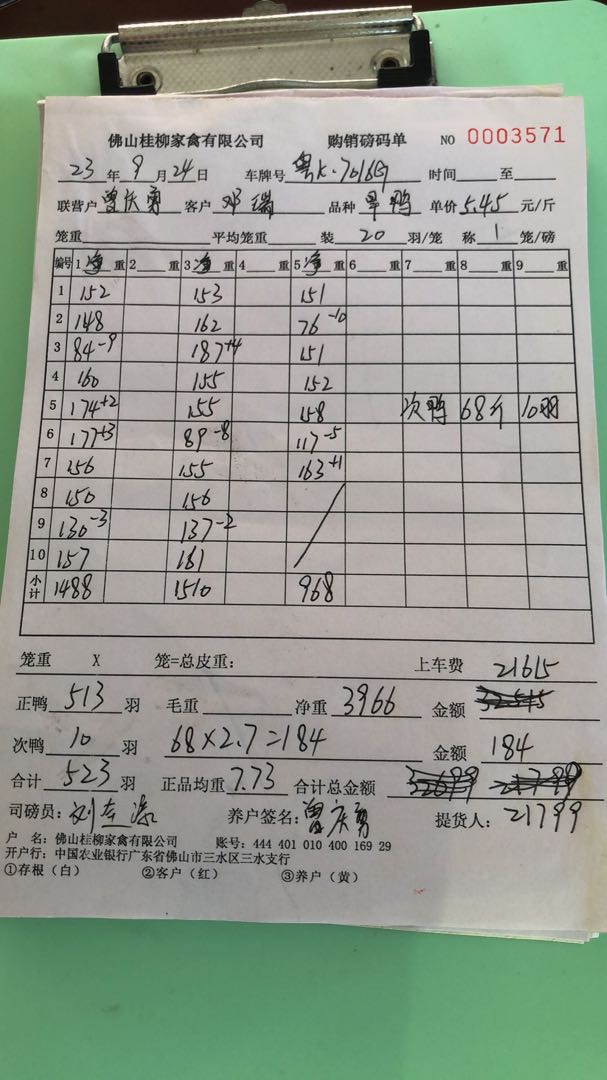 佛山桂柳家禽有限公司 购销磅码单 NO 0003571
23 年 9 月 24 日 车牌号 粤K·7016G 时间 至
联营户 曾庆勇 客户 邓瑞 品种 旱鸭 单价 5.45 元/斤
笼重 平均笼重 装 20 羽/笼 称 1 笼/磅
编号 1 净 重 2 重 3 净 重 4 重 5 净 重 6 重 7 重 8 重 9 重
1 152 153 151
2 148 162 76 -10
3 84 -9 187 +4 151
4 160 155 152
5 174 +2 155 158 次鸭 68斤 10羽
6 177 +3 89 -8 117 -5
7 156 155 163 +1
8 150 156
9 130 -3 137 -2
10 157 161
小计 1488 1510 968
笼重 X 笼=总皮重: 上车费 21615
正鸭 513 羽 毛重 净重 3966 金额
次鸭 10 羽 68×2.7=184 金额 184
合计 523 羽 正品均重 7.73 合计总金额
司磅员: 养户签名: 曾庆勇 提货人: 21799
户 名: 佛山桂柳家禽有限公司 账号: 444 401 010 400 169 29
开户行: 中国农业银行广东省佛山市三水区三水支行
①存根(白) ②客户(红) ③养户(黄)